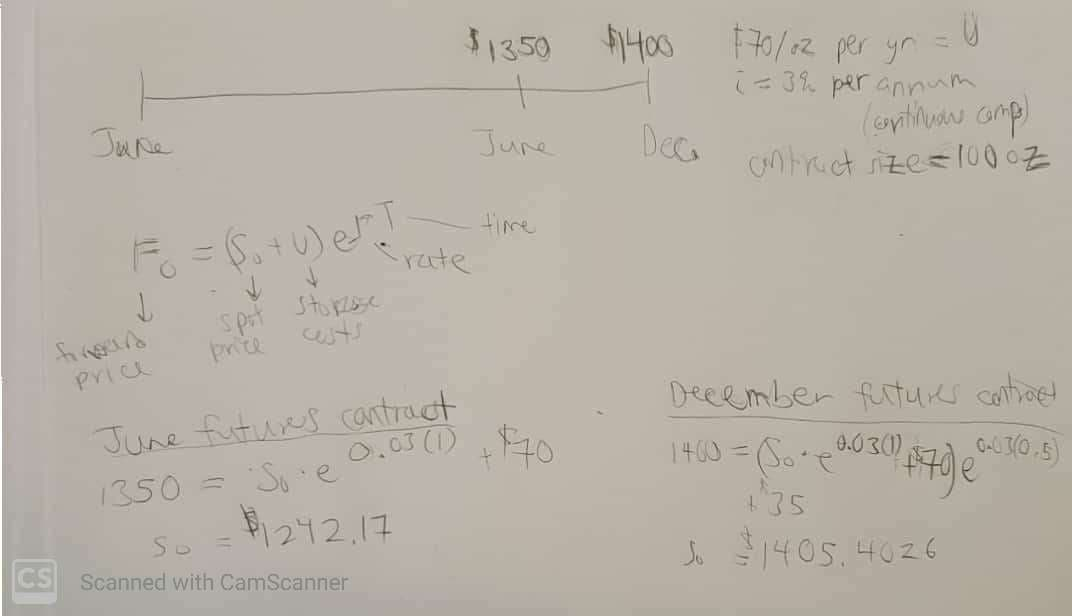 $1350 $1400
June June Dec
$70/oz per yr = U
i = 3% per annum
(continuous comp)
contract size = 100 oz
F₀ = (S₀ + U) e^rT
time
rate
forward price
spot price
storage costs
June futures contract
1350 = S₀ · e^0.03(1) + $70
S₀ = $1242.17
December futures contract
1400 = (S₀ · e^0.03(1) + $70) e^0.03(0.5)
+ $35
S₀ = $1405.4026
CS Scanned with CamScanner